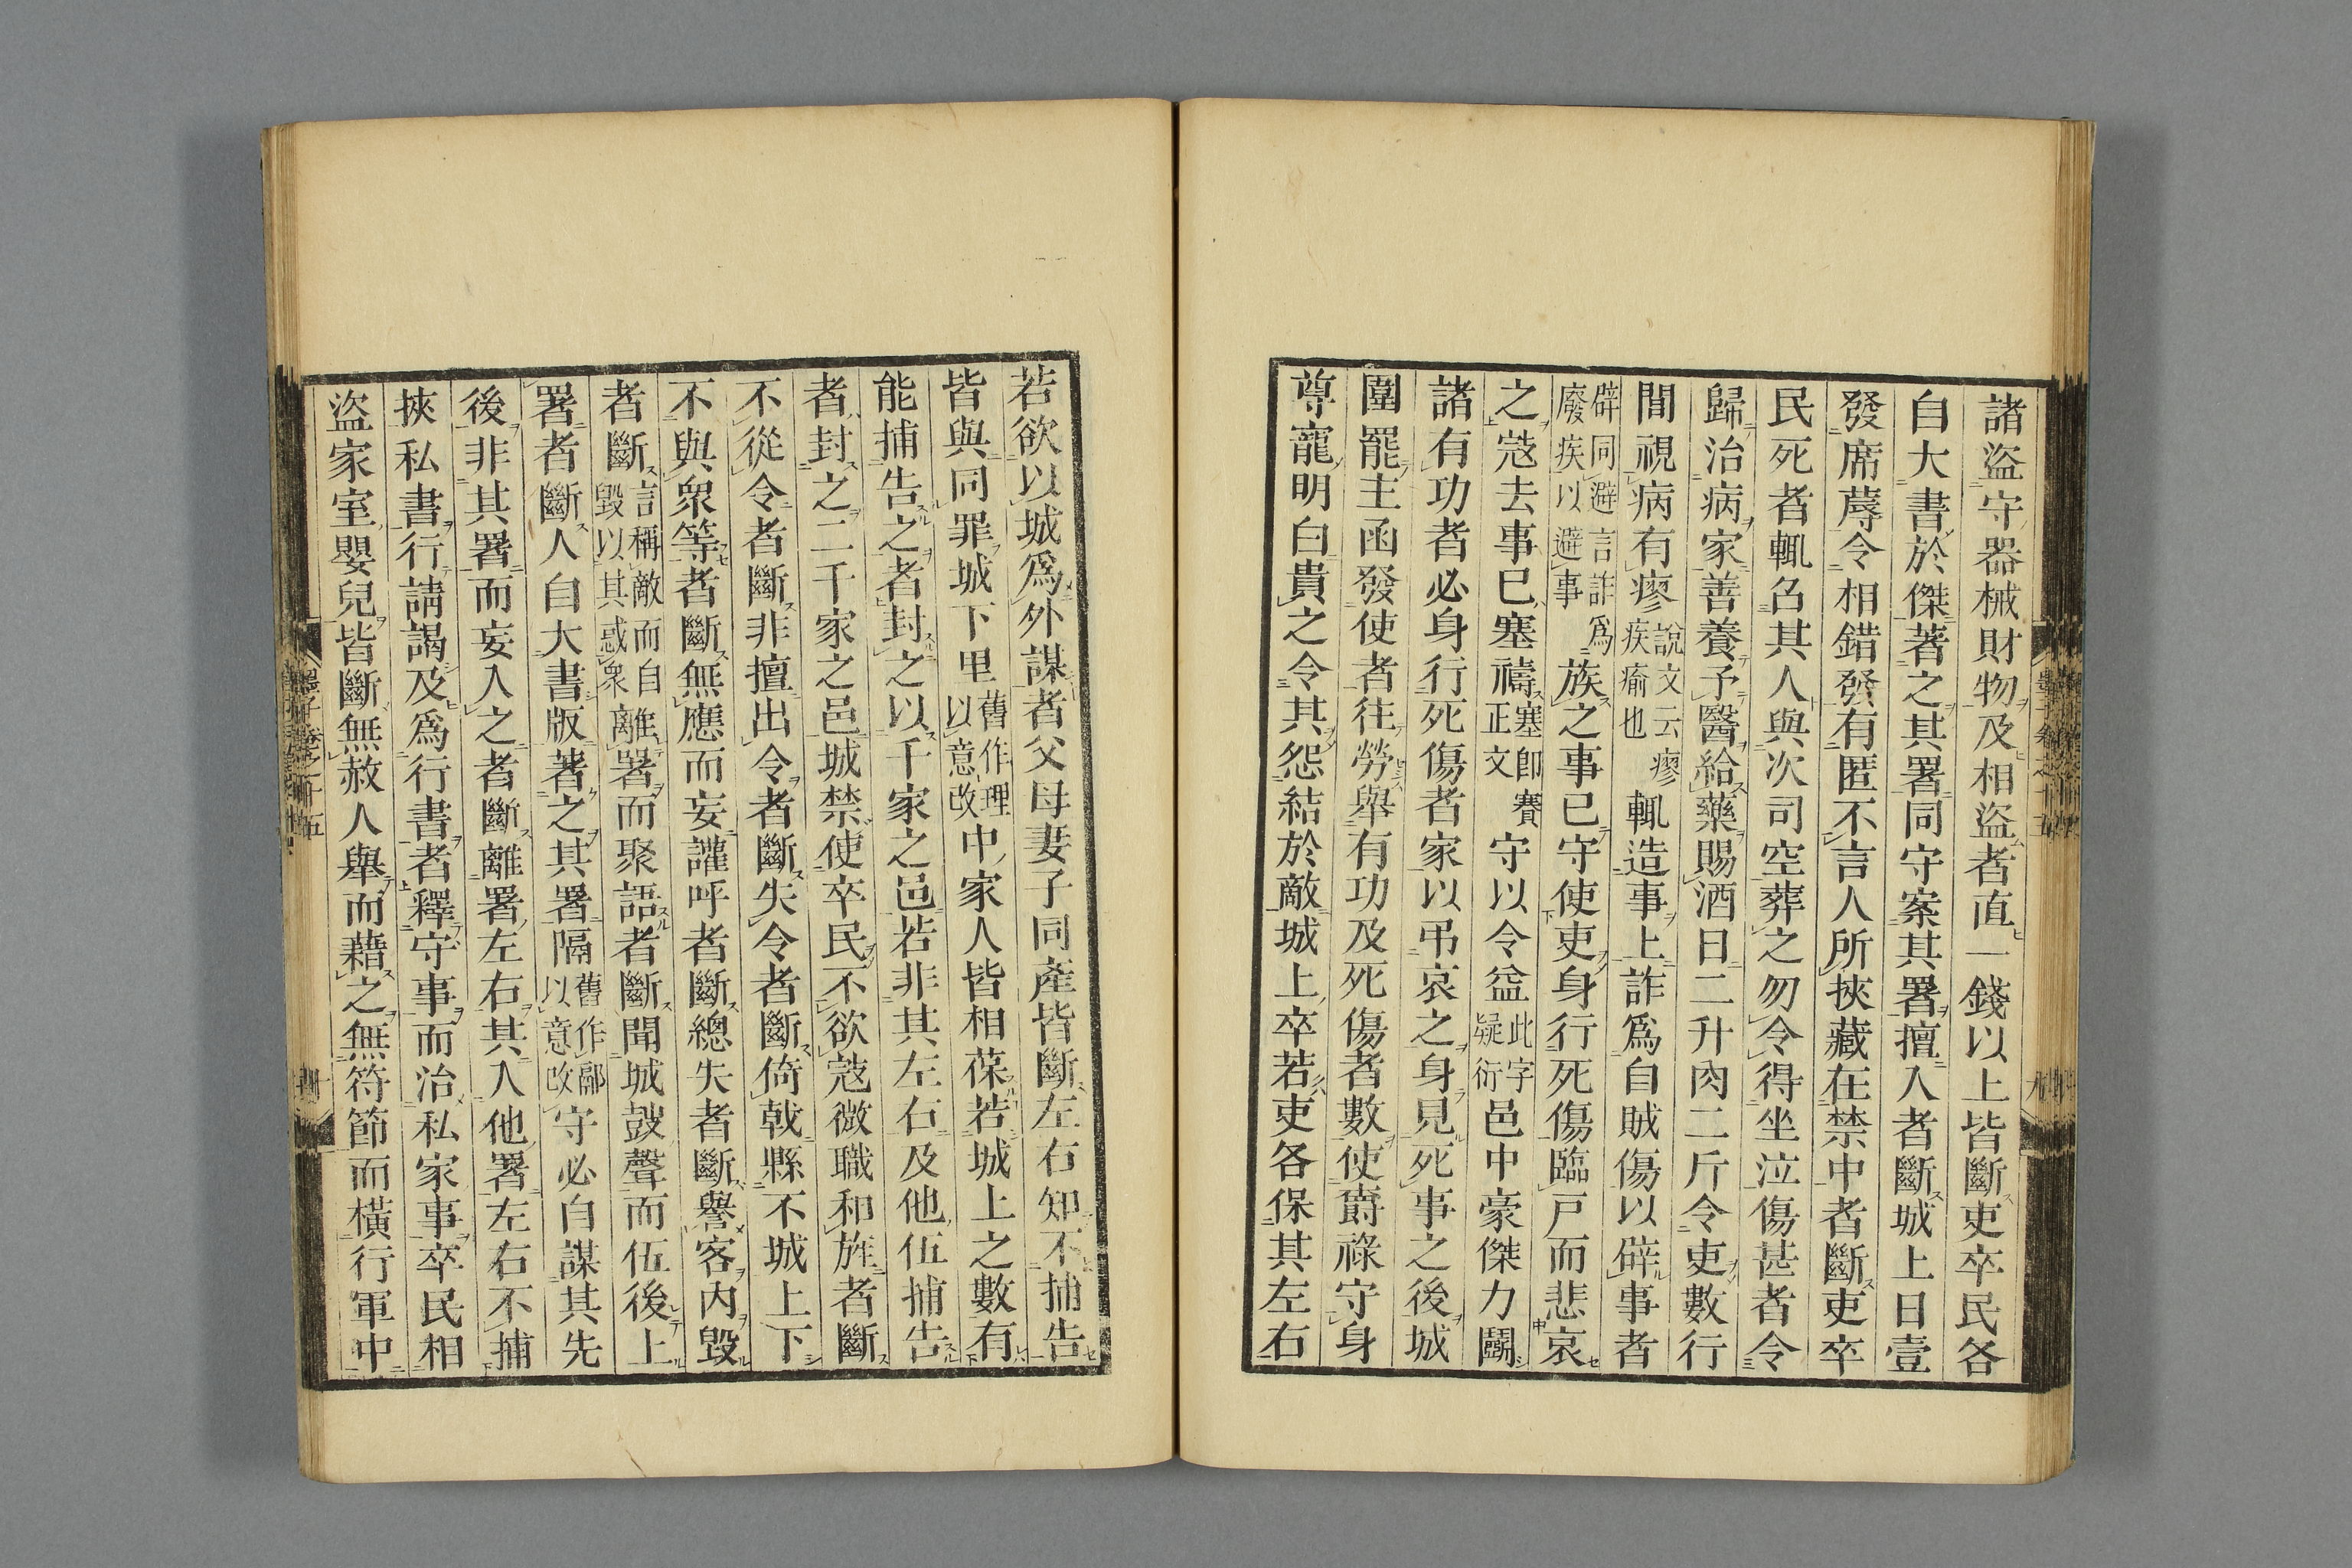 諸盜守器械財物及相盜者直一錢以上皆斷吏卒民各
自大書於傑著之其署同守案其署擅入者斷城上日壹
發席蓐令相錯發有匿不言人所挾藏在禁中者斷吏卒
民死者輒召其人與次司空葬之勿令得坐泣傷甚者令
歸治病家善養予醫給藥賜酒日二升肉二斤令吏數行
閭視病有瘳說文云瘳疾瘉也輒造事上詐爲自賊傷以辟事者
辟同避言詐爲廢疾以避事族之事已守使吏身行死傷臨戶而悲哀
之寇去事已塞禱塞卽賽正文守以令益此字疑衍邑中豪傑力鬭
諸有功者必身行死傷者家以弔哀之身見死事之後城
圍罷主函發使者往勞舉有功及死傷者數使爵祿守身
尊寵明白貴之令其怨結於敵城上卒若吏各保其左右
若欲以城爲外謀者父母妻子同產皆斷左右知不捕告
皆與同罪城下里舊作理以意改中家人皆相葆若城上之數有
能捕告之者封之以千家之邑若非其左右及他伍捕告
者封之二千家之邑城禁使卒民不欲寇微職和旌者斷
不從令者斷非擅出令者斷失令者斷倚戟縣不城上下
不與衆等者斷無應而妄讙呼者斷總失者斷譽客內毀
者斷言稱敵而自毀以其惑衆離署而聚語者斷聞城鼓聲而伍後上
署者斷人自大書版著之其署隔舊作鄏以意改守必自謀其先
後非其署而妄入之者斷離署左右其入他署左右不捕
挾私書行請謁及爲行書者釋守事而治私家事卒民相
盜家室嬰兒皆斷無赦人舉而藉之無符節而橫行軍中
墨子卷之十五